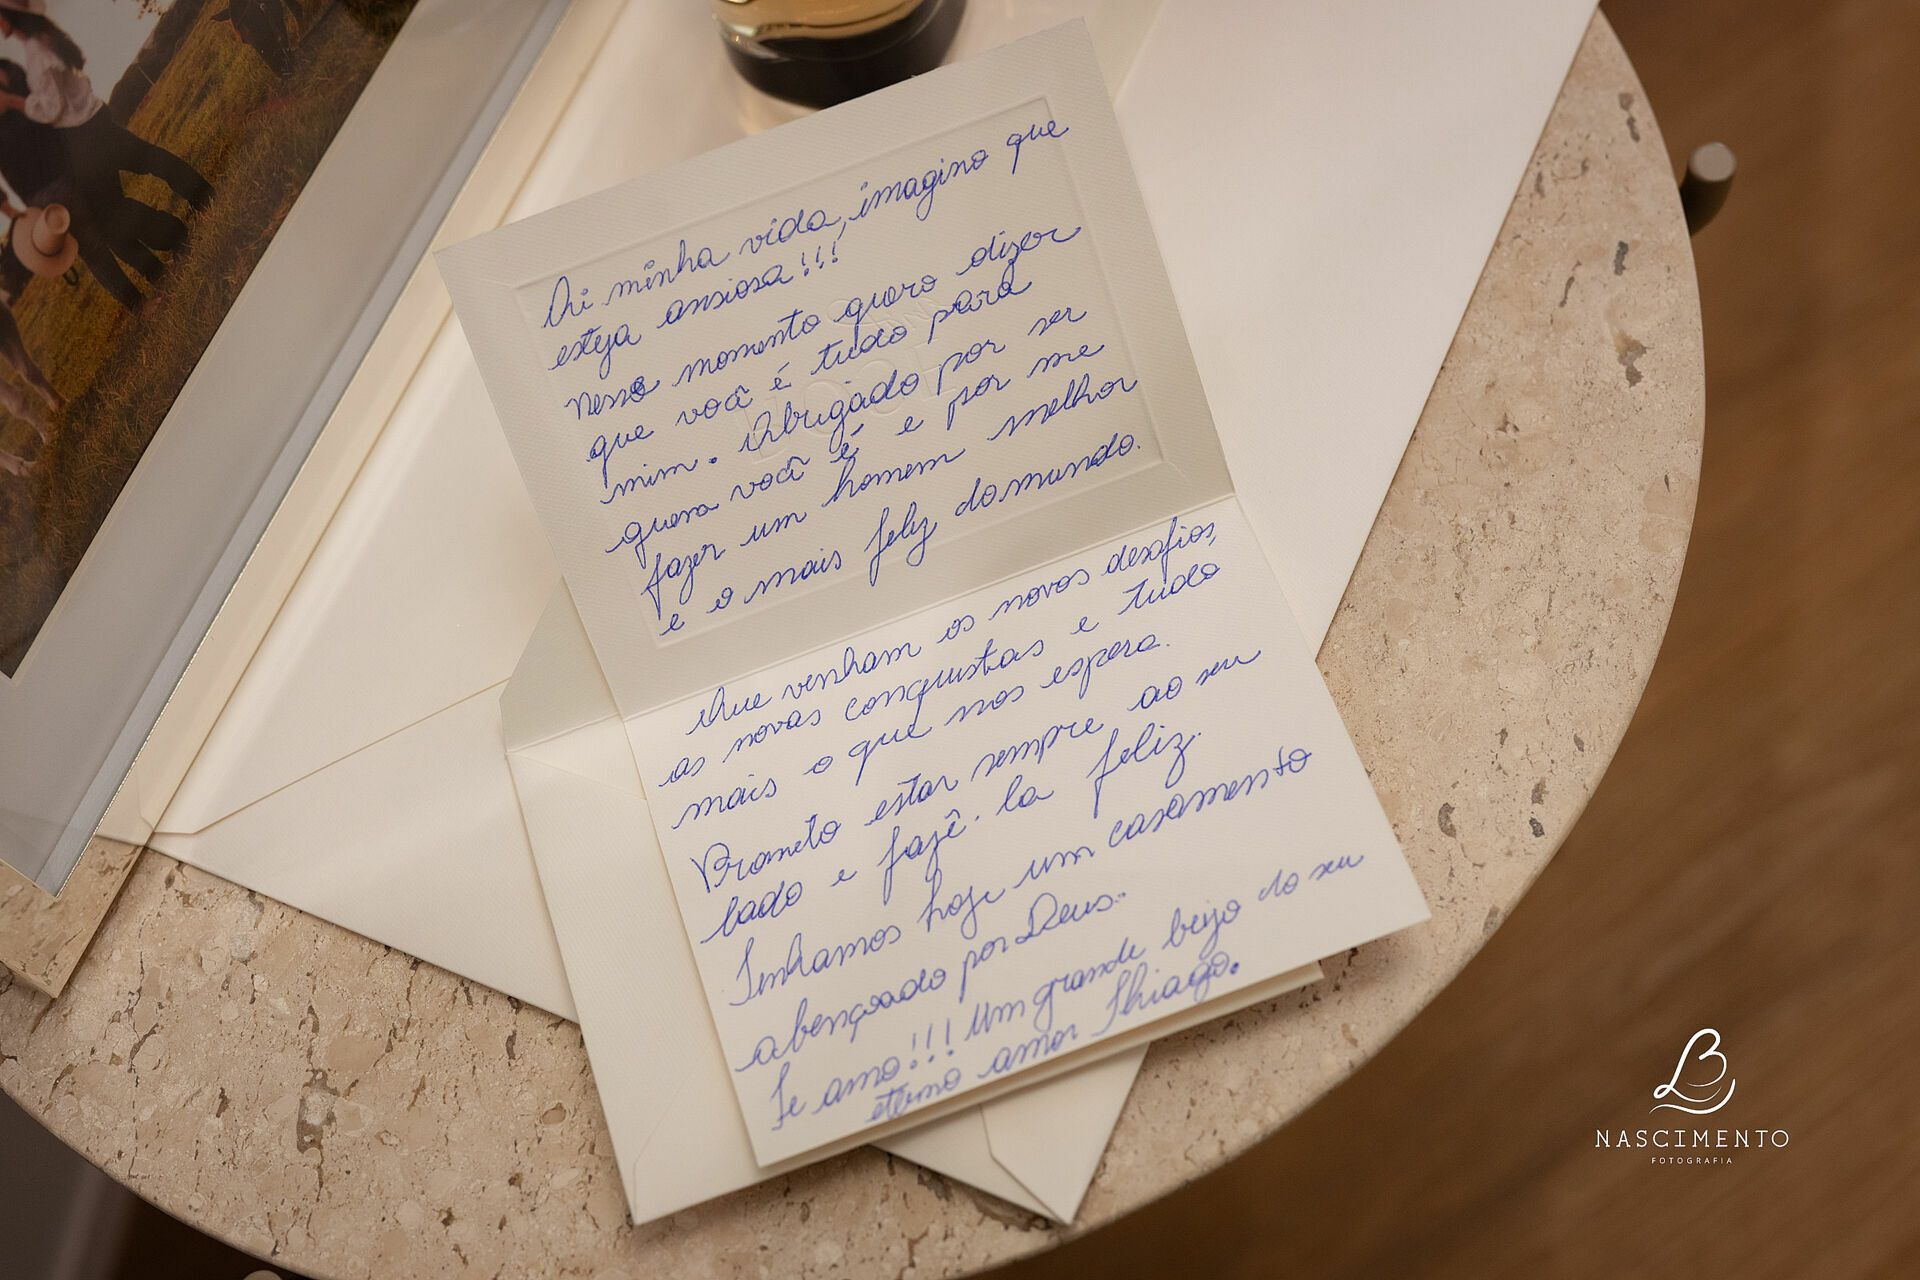 Oi minha vida, imagino que
esteja ansiosa!!!
Nesse momento quero dizer
que você é tudo para
mim. Obrigado por ser
quem você é e por me
fazer um homem melhor
e o mais feliz do mundo.
Que venham os novos desafios,
as novas conquistas e tudo
mais o que nos espera.
Prometo estar sempre ao seu
lado e fazê-la feliz.
Tenhamos hoje um casamento
abençoado por Deus.
Te amo!!! Um grande beijo do seu
eterno amor Thiago.
B
NASCIMENTO
FOTOGRAFIA